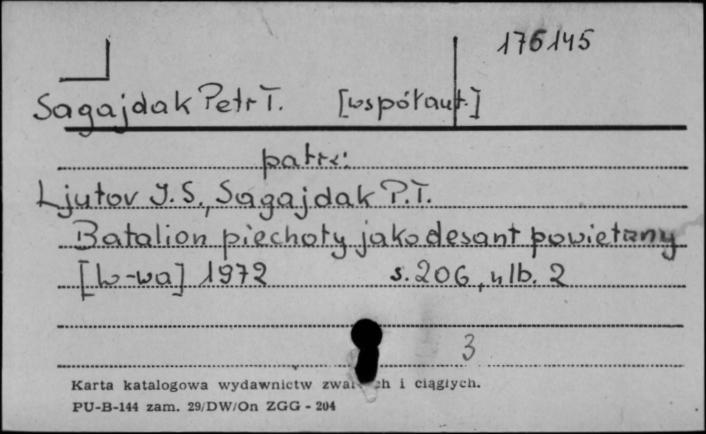 176145
Sagajdak Petr T. [współaut.]
patrz:
Ljutov J.S., Sagajdak P.T.
Batalion piechoty jako desant powietrzny
[W-wa] 1972 s. 206, nlb. 2
3
Karta katalogowa wydawnictw i ciągłych.
PU-B-144 zam. 29/DW/On ZGG - 204